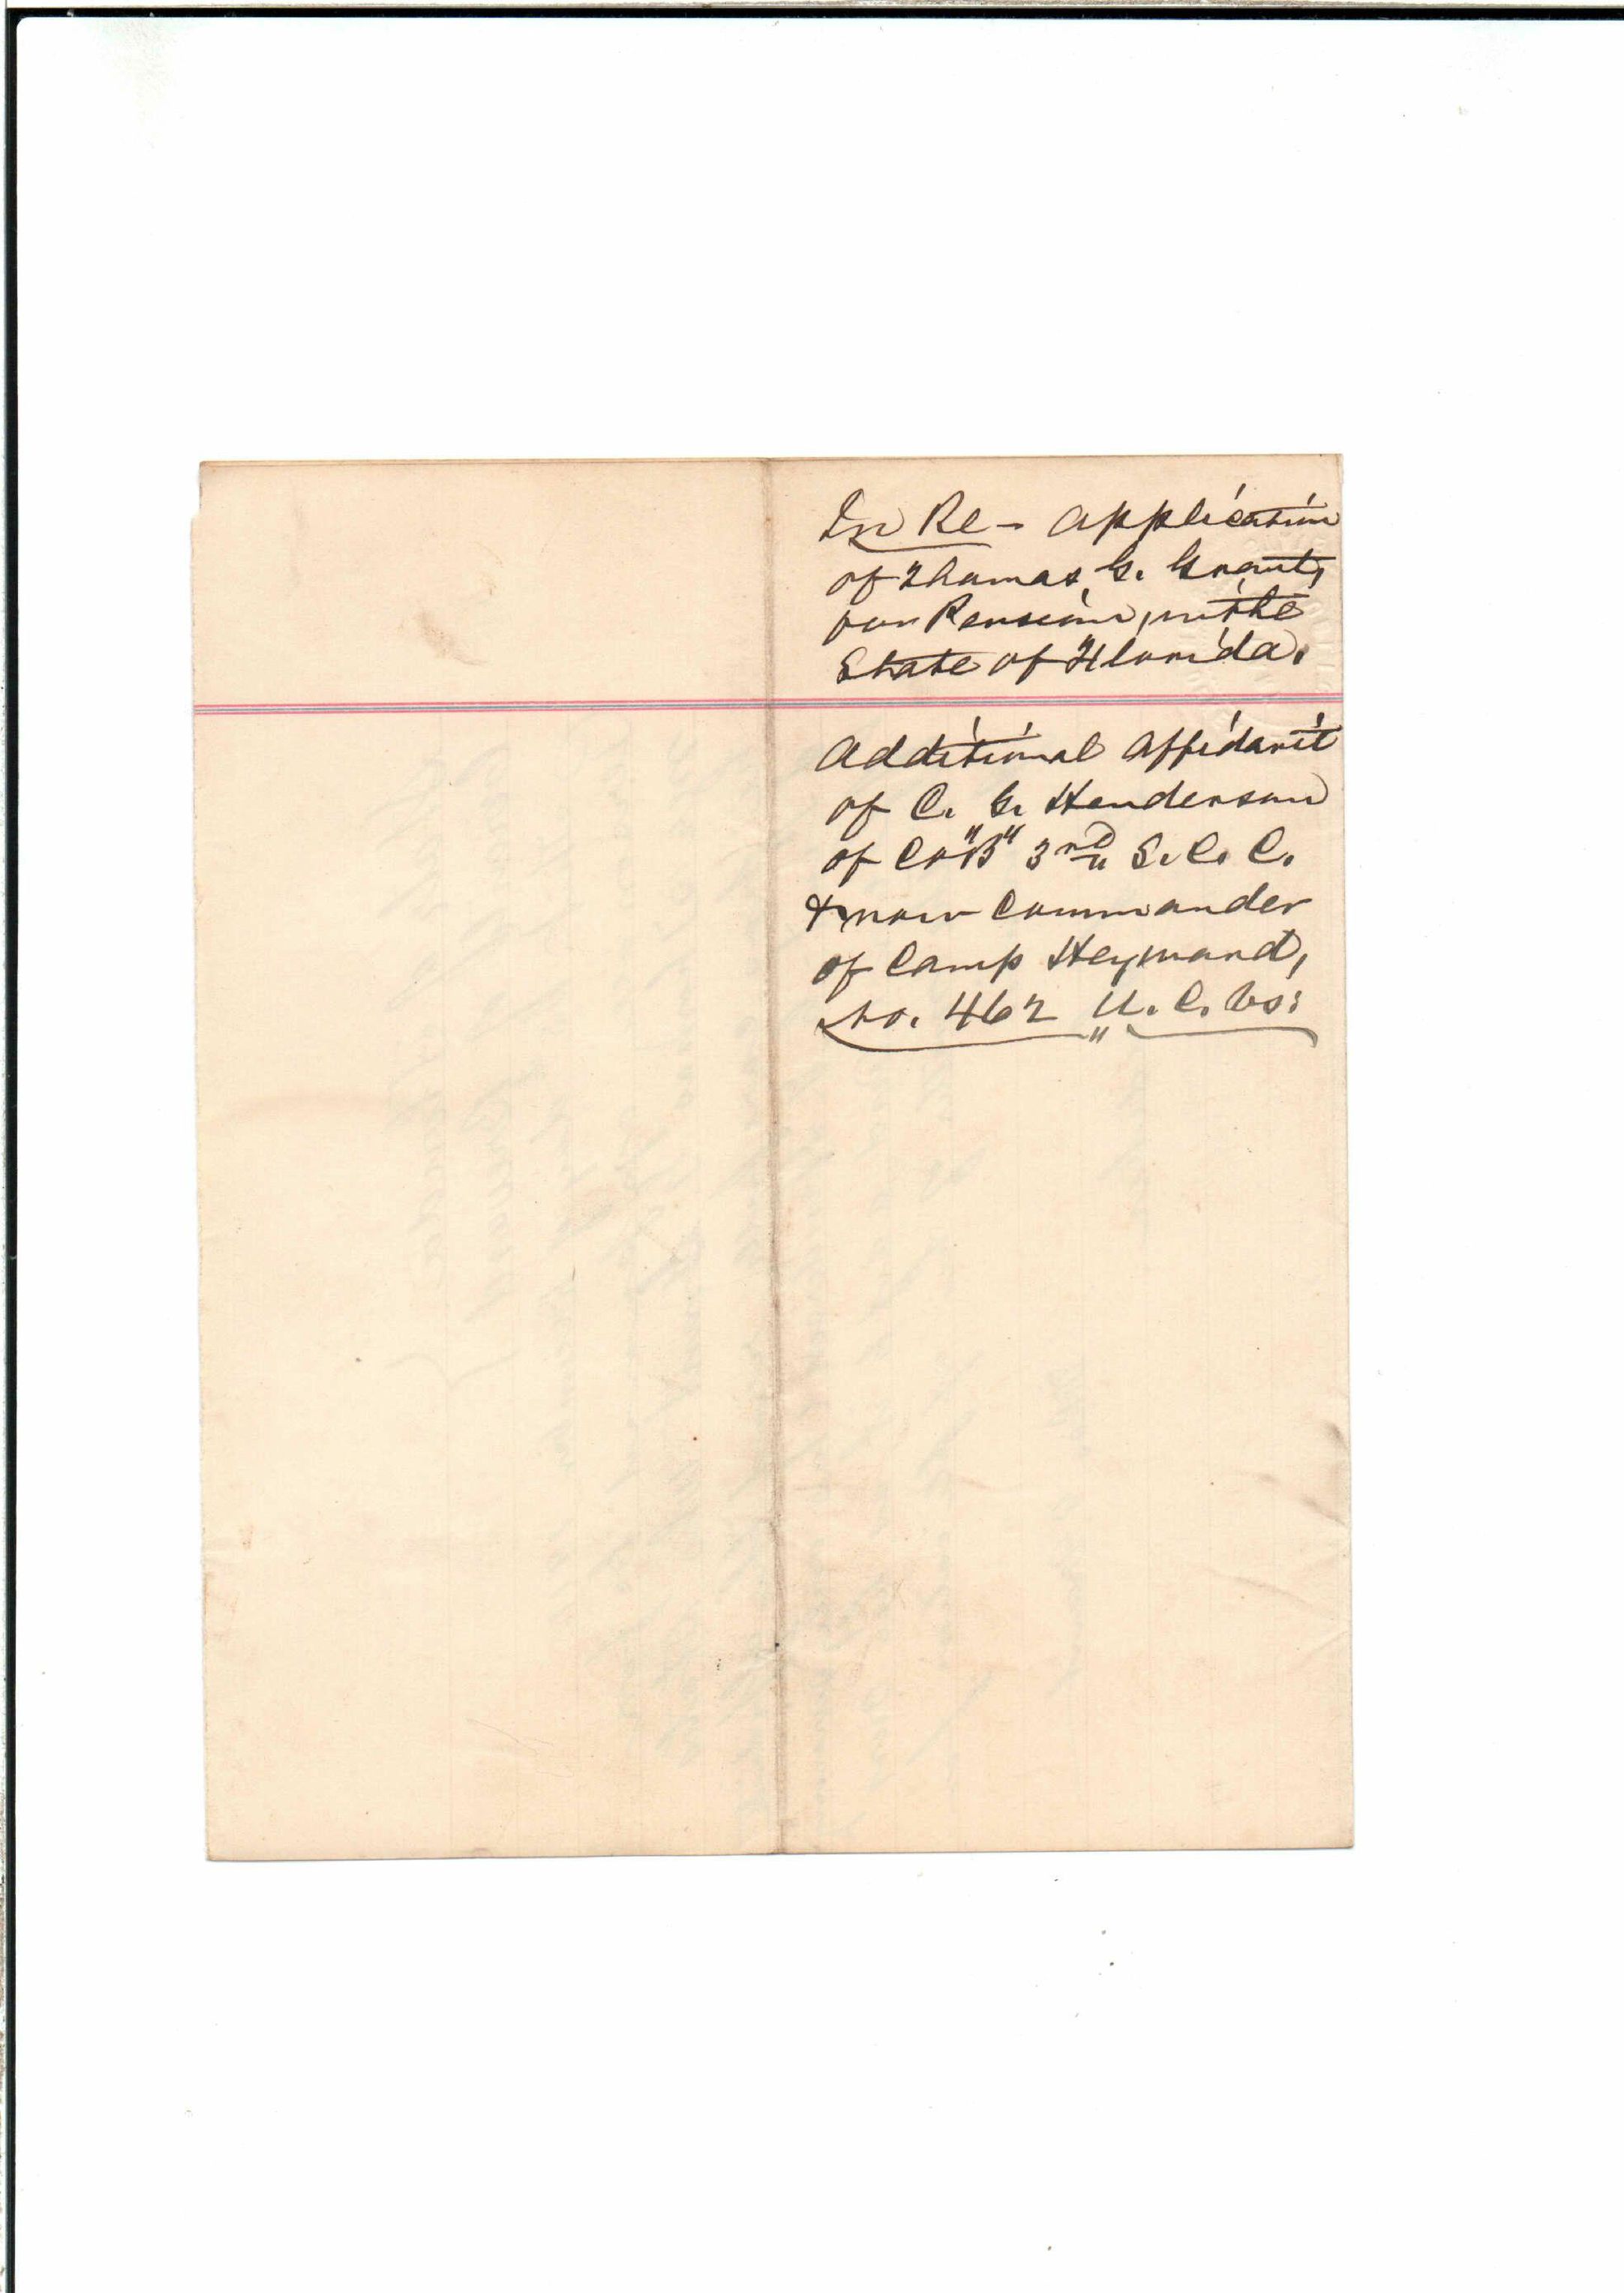 In Re - Application
of Thomas G. Grant,
for Pension, in the
State of Florida.
Additional Affidavit
of C. G. Henderson
of Co "B" 3rd S. C. C.
& now Commander
of Camp Heyward,
No. 462 U. C. Vs: